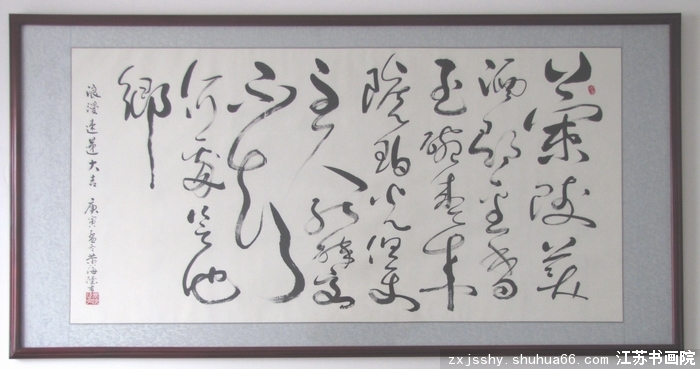 蘭陵美
酒郁金香
玉碗盛来
琥珀光但使
主人能醉客
不知
何處是他
鄉
浪漫 大吉 庚寅
zxjsshy.shuhua66.com 江苏书画院